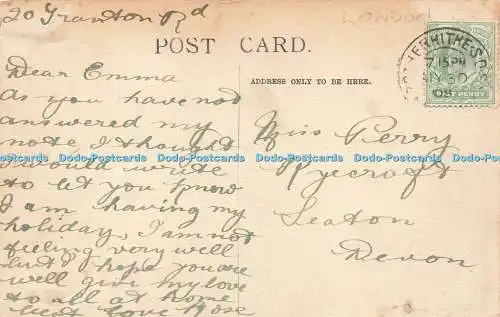 20 Granton Rd
LONDON
POST CARD.
ADDRESS ONLY TO BE HERE.
Dear Emma
as you have not
answered my
note, I thought
I would write
to let you know
I am having my
holiday, I am not
feeling very well
but I hope you are
well give my love
to all at home
best love Rose
Miss Perry
Ryecroft
Seaton
Devon
ROTHERHITHE S.O. S.E.
7 15 PM
30
05
HALFPENNY
Dodo-Postcards Dodo-Postcards Dodo-Postcards Dodo-Postcards